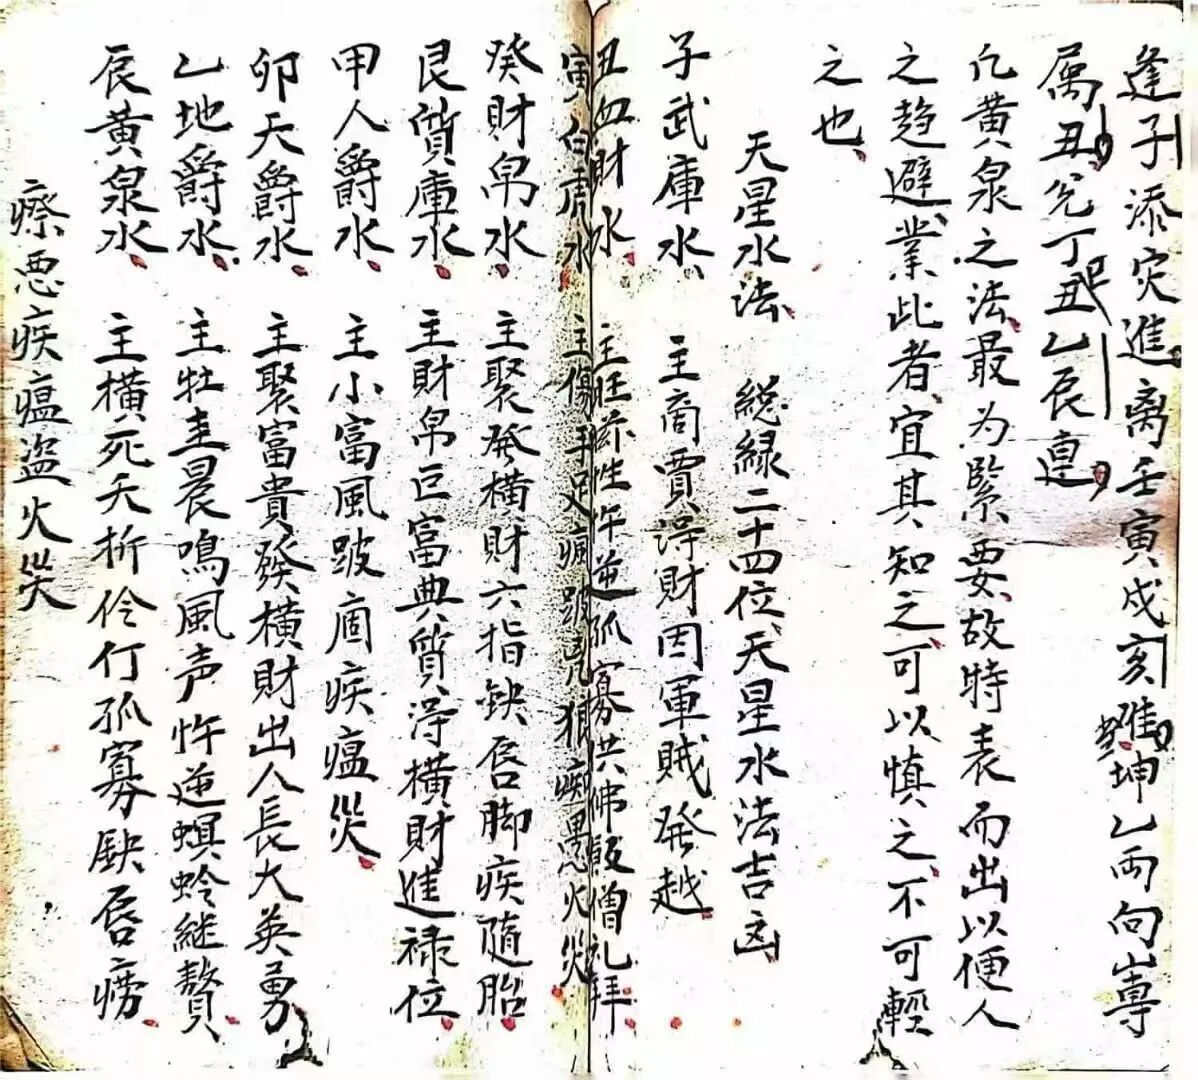 逢子添灾進离壬寅戌亥難坤乙両向嵩
厲丑兊丁丑巳乙辰連
凢黄泉之法最为緊要故特表而出以便人
之趋避業此者宜其知之可以慎之不可輕
之也
天星水法 総緑二十四位天星水法吉凶
子武庫水 主商賈淂財因軍賊発越
丑血財水 主旺 性忤逆孤寡供佛 僧礼拜
寅白虎水 主傷手足瘋跛 狼痴愚火災
癸財帛水 主聚発横財六指缺唇脚疾隨胎
艮質庫水 主財帛巨富典質淂横財進禄位
甲人爵水 主小富風跛痼疾瘟災
卯天爵水 主聚富貴発横財出人長大英勇
乙地爵水 主牡圭晨鳴風声忤逆螟蛉継贅
辰黄泉水 主横死夭折伶仃孤寡缺唇痨
瘵悪疾瘟盗火災